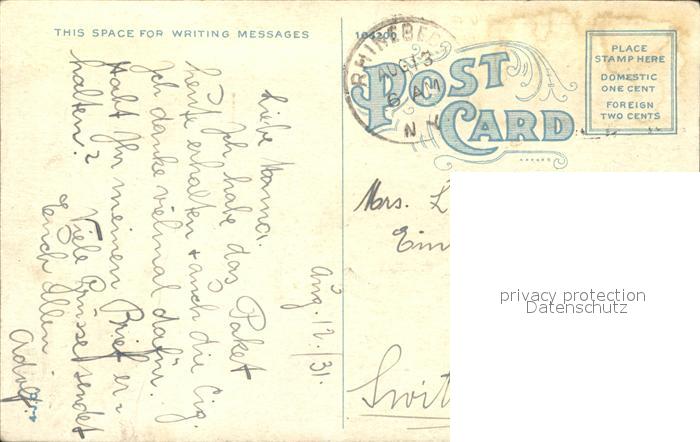 THIS SPACE FOR WRITING MESSAGES
104200
RHINEBECK
AUG 13
6 AM
N.Y.
POST
CARD
PLACE
STAMP HERE
DOMESTIC
ONE CENT
FOREIGN
TWO CENTS
Aug. 12./31.
Liebe Mamma.
Ich habe das Paket
heute erhalten + auch die Cig.
Ich danke vielmal dafür.
Habt Ihr meinen Brief er-
halten? Viele Grüsse sendet
Euch Allen
Adolf.
Mrs. L
Ein
Swit
privacy protection
Datenschutz